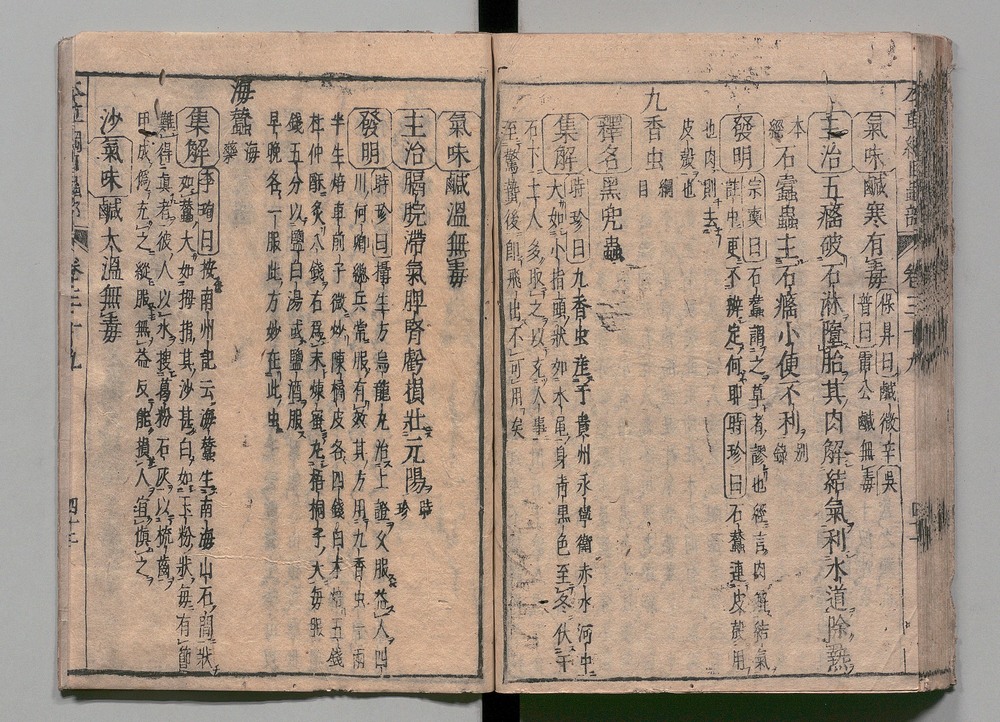 氣味鹹寒有毒保昇曰鹹微辛吳普曰雷公鹹無毒
主治五癃破石淋墮胎其肉解結氣利水道除熱
本經石蠶蟲主石癃小便不利別錄
發明宗奭曰石蠶謂之草者謬也經言肉解結氣註中更不辨定何耶時珍曰石蠶連皮殼用
也肉則去皮殼也
九香虫綱目
釋名黑兜蟲
集解時珍曰九香虫産于貴州永寧衛赤水河中大如小指頭狀如水黽身青黑色至冬伏于
石下土人多取之以充人事至驚蟄後即飛出不可用矣
氣味鹹溫無毒
主治膈脘滯氣脾腎虧損壯元陽時珍
發明時珍曰攝生方烏龍丸治上證久服益人四川何卿總兵常服有效其方用九香虫一兩
半生焙車前子微炒陳橘皮各四錢白朮焙五錢杜仲酥炙八錢右爲末煉蜜丸梧桐子大每服
錢五分以鹽白湯或鹽酒服早晚各一服此方妙在此虫
海蠶海藥
集解李珣曰按南州記云海蠶生南海山石間狀如蠶大如拇指其沙甚白如玉粉狀每有節
難得真者彼人以水搜葛粉石灰以梳齒印成僞充之縱服無益反能損人宜慎之
沙氣味鹹大溫無毒